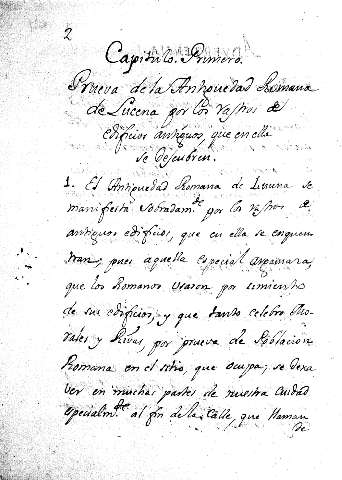 2
Capitulo. Primero.
Prueva de la Antiguedad Romana
de Lucena por los rastros de
edificios antiguos, que en ella
se Descubren.
1. El Antiguedad Romana de Lucena se
manifiesta sobradam.te por los rastros de
antiguos edificios, que en ella se enquen
tran; pues aquella especial argamasa,
que los Romanos usaron por simiento
de sus edificios, y que tanto celebro Mo
rales y Rivas, por prueva de Poblacion
Romana en el sitio, que ocupa; se dexa
ver en muchas partes de nuestra Ciudad
especialm.te al fin de la Calle, que llaman
de